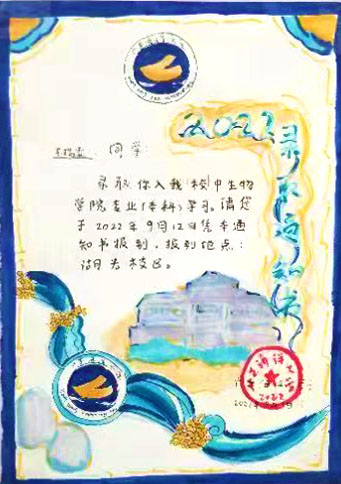 2022录取通知书
同学:
录取你入我(校)中生物
学院专业(本科)学习。请您
于2022年9月12日凭本通
知书报到,报到地点:
湖光校区。
海洋大学
2022